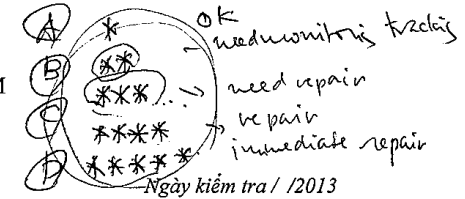 A * OK
need monitoring
B **
*** need repair
C
**** repair
immediate repair
D *****
Ngày kiểm tra / /2013